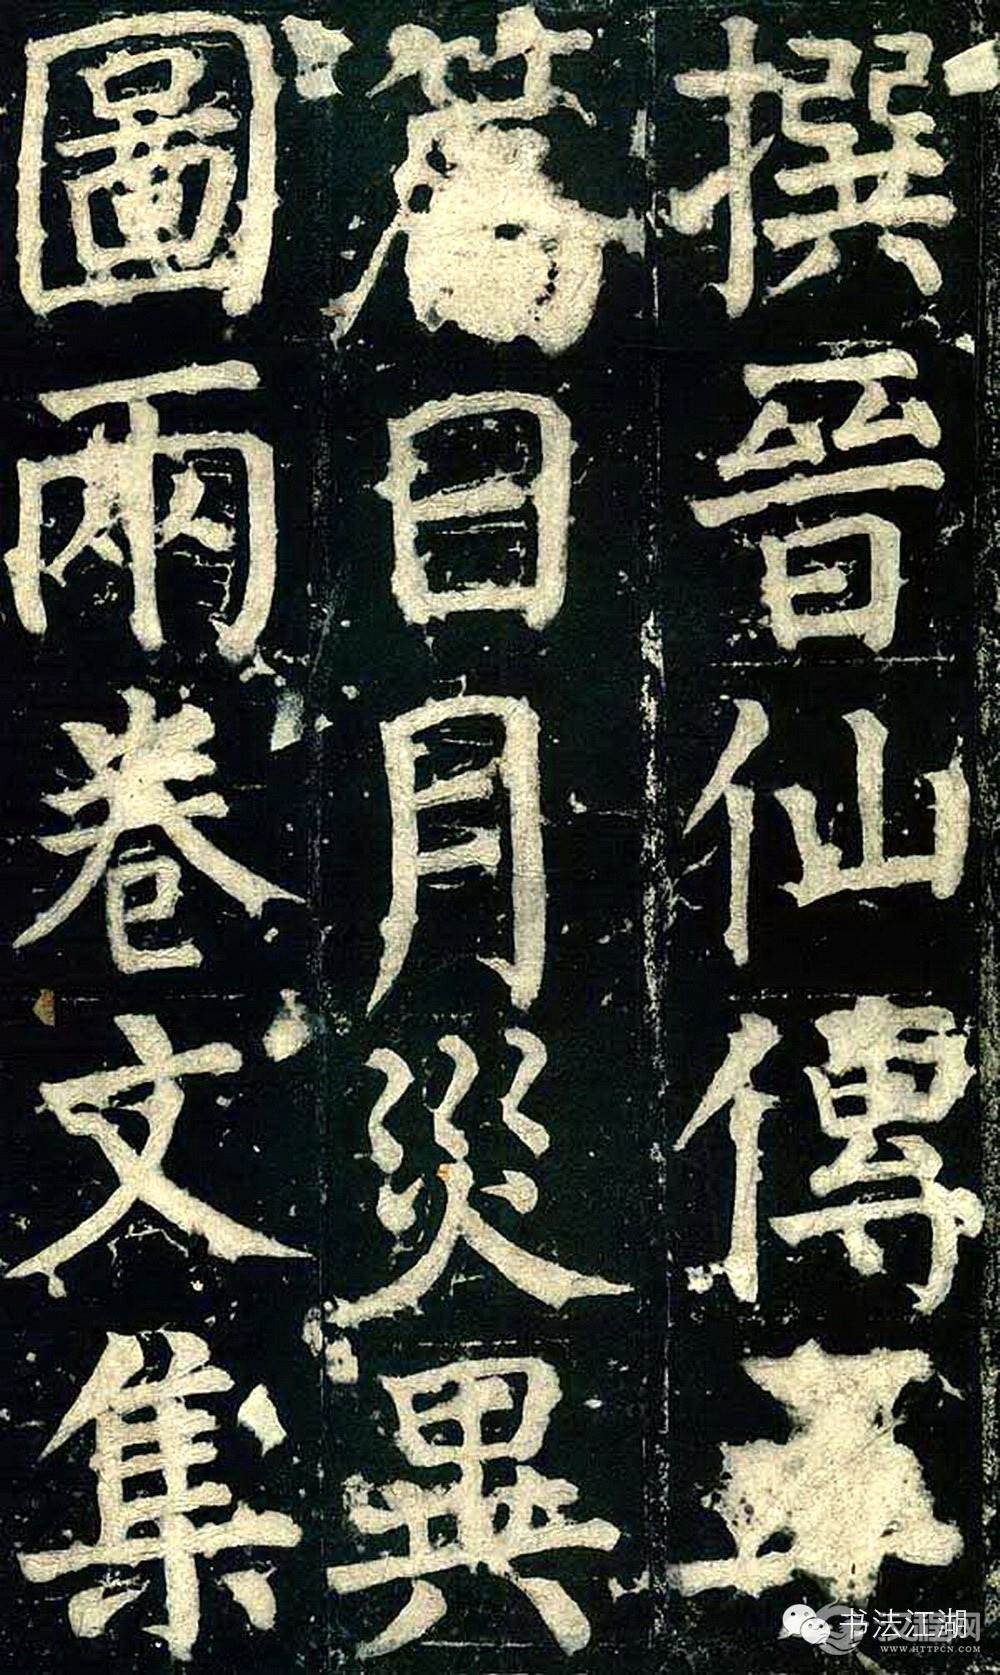 撰晉仙傳五
篇日月災異
圖兩卷文集
书法江湖
WWW.HTTPCN.COM